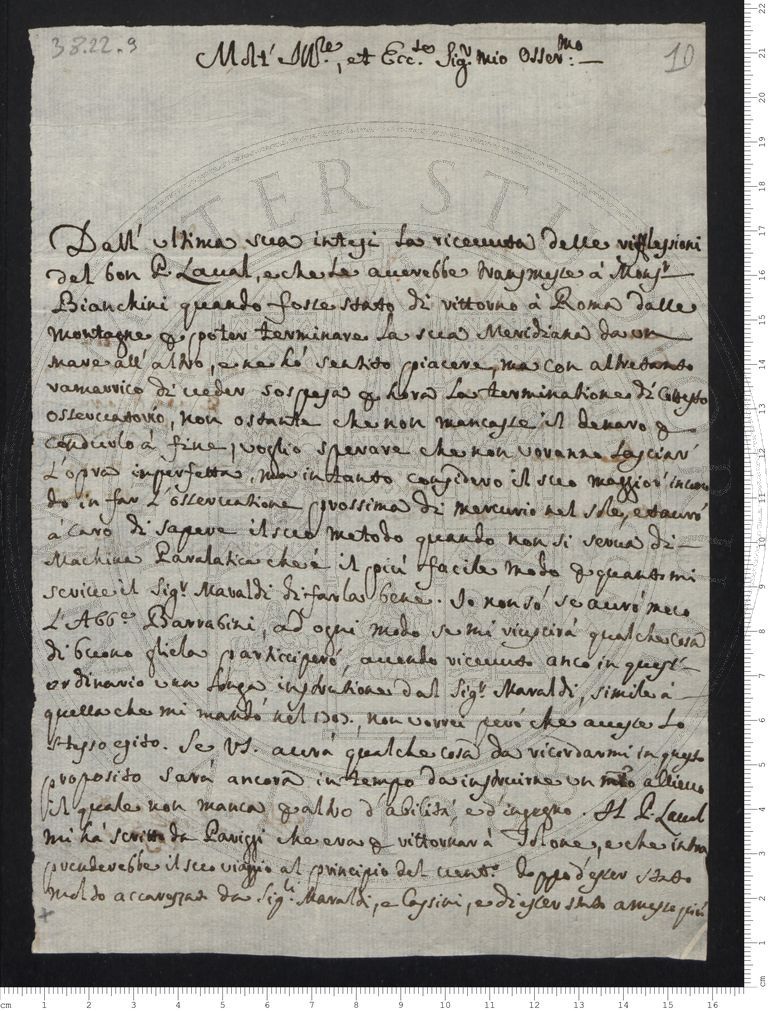 38.22.9
10
Molt' Ill.re, et Ecc.te Sig.r mio Osser.mo: —
Dall' ultima sua intesi la riceuuta delle riflessioni
del bon P. Laual, e che le auerebbe transmesse à Mons.r
Bianchini quando fosse stato di ritorno à Roma dalle
montagne p poter terminare la sua Meridiana da un
mare all' altro, e ne hò sentito piacere, ma con altretanto
ramarrico di ueder sospesa p hora la terminatione di Cotesto
osseruatorio, non ostante che non mancasse il denaro p
condurlo à fine; uoglio sperare che non uoranno lasciar'
l'opra imperfetta, ma intanto considero il suo maggior' incom
do in far l'osseruatione prossima di mercurio nel sole, et aurò
à caro di sapere il suo metodo quando non si serua di —
Machina Paralatica che è il più facile modo p quanto mi
scriue il Sig.r Maraldi di farla bene. Io non sò se aurò meco
l'Abb.e Barrabini, ad ogni modo se mi riuscirà qualche cosa
di buono gliela parteciperò, auendo riceuuto anco in quest'
ordinario una longa instrutione dal Sig.r Maraldi, simile à —
quella che mi mandò nel 1707, non vorrei però che auesse lo
stesso esito. Se VS. aurà qualche cosa da ricordarmi in questo
proposito sarà ancora in tempo da instruirne un mio allieuo
il quale non manca p altro d'abilità, e d'ingegno. Il P. Laual
mi hà scritto da Pariggi che era p ritornar à Tolone, e che intra
prenderebbe il suo viaggio al principio del uent.o doppo d'esser stato
molto accarezzato da Sig.ri Maraldi, e Cassini, e di esser stato amesse più